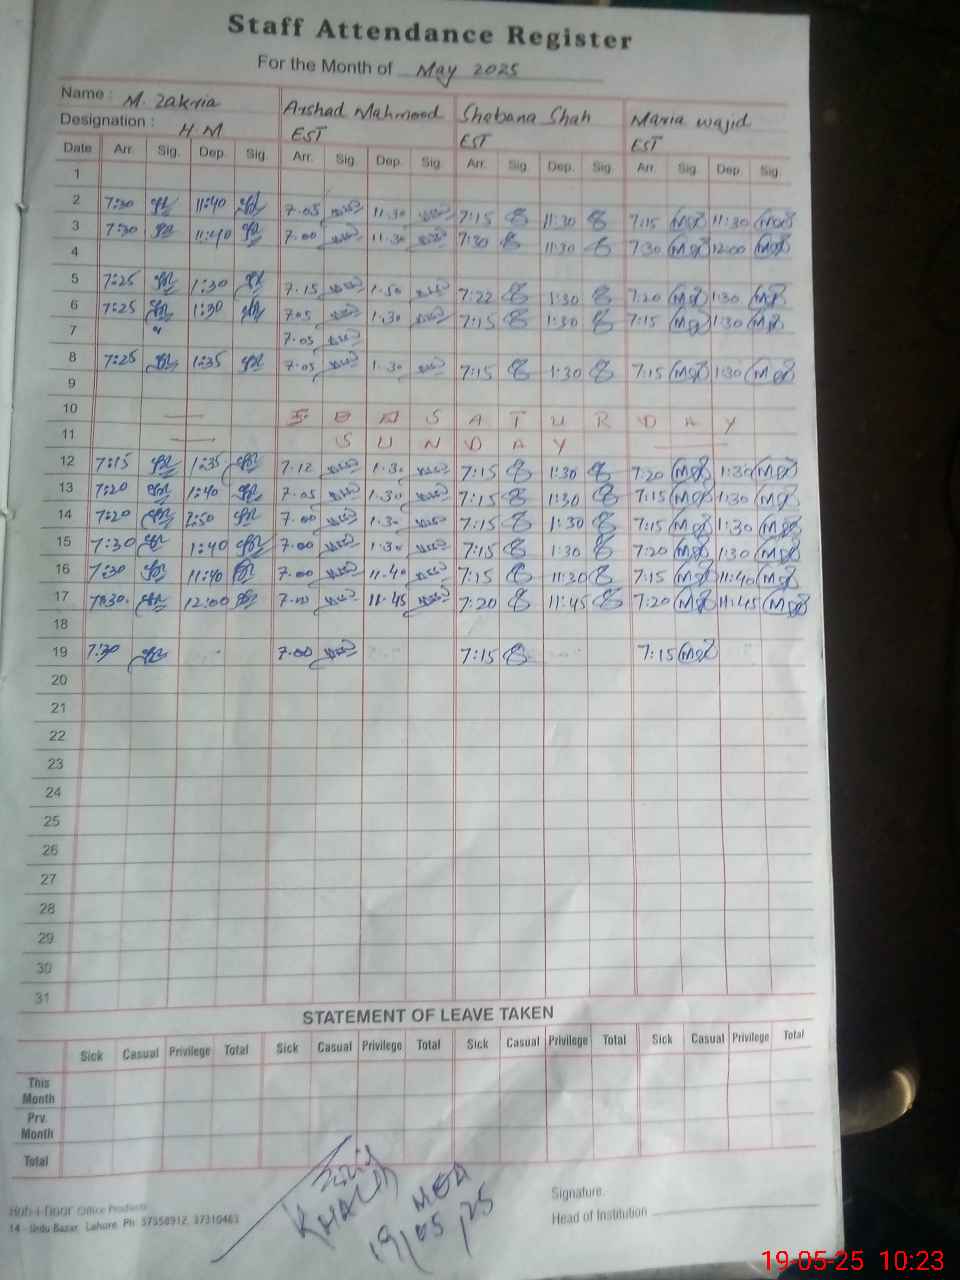 Staff Attendance Register
For the Month of May 2025
Name : M. Zakria Arshad Mahmood Shabana Shah Maria wajid
Designation : H.M EST EST EST
Date Arr. Sig. Dep. Sig. Arr. Sig. Dep. Sig. Arr. Sig. Dep. Sig. Arr. Sig. Dep. Sig.
1
2 7:30 11:40 7.05 11.30 7:15 11:30 7:15 11:30
3 7:30 11:40 7.00 11.30 7:30 11:30 7:30 12:00
4
5 7:25 1:30 7.15 1.30 7:22 1:30 7:20 1:30
6 7:25 1:30 7.05 1.30 7:15 1:30 7:15 1:30
7 7.05
8 7:25 1:35 7.05 1.30 7:15 1:30 7:15 1:30
9
10 S A T U R D A Y
11 S U N D A Y
12 7:15 1:35 7.12 1.30 7:15 1:30 7:20 1:30
13 7:20 1:40 7.05 1.30 7:15 1:30 7:15 1:30
14 7:20 1:50 7.00 1.30 7:15 1:30 7:15 1:30
15 7:30 1:40 7.00 1.30 7:15 1:30 7:20 1:30
16 7:30 11:40 7.00 11.40 7:15 11:30 7:15 11:40
17 7:30 12:00 7.00 11.45 7:20 11:45 7:20 11:45
18
19 7:30 7.00 7:15 7:15
20
21
22
23
24
25
26
27
28
29
30
31
STATEMENT OF LEAVE TAKEN
Sick Casual Privilege Total Sick Casual Privilege Total Sick Casual Privilege Total Sick Casual Privilege Total
This Month
Prv. Month
Total
KHALID MEA
19/05/25
Office Products
14 - Urdu Bazar, Lahore. Ph: 37358912, 37310463
Signature.
Head of Institution
19-05-25 10:23